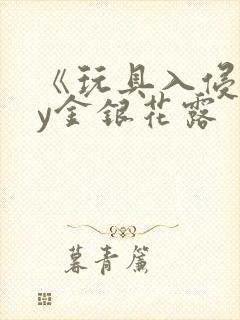 《玩具入侵
y金银花露
暮青簾